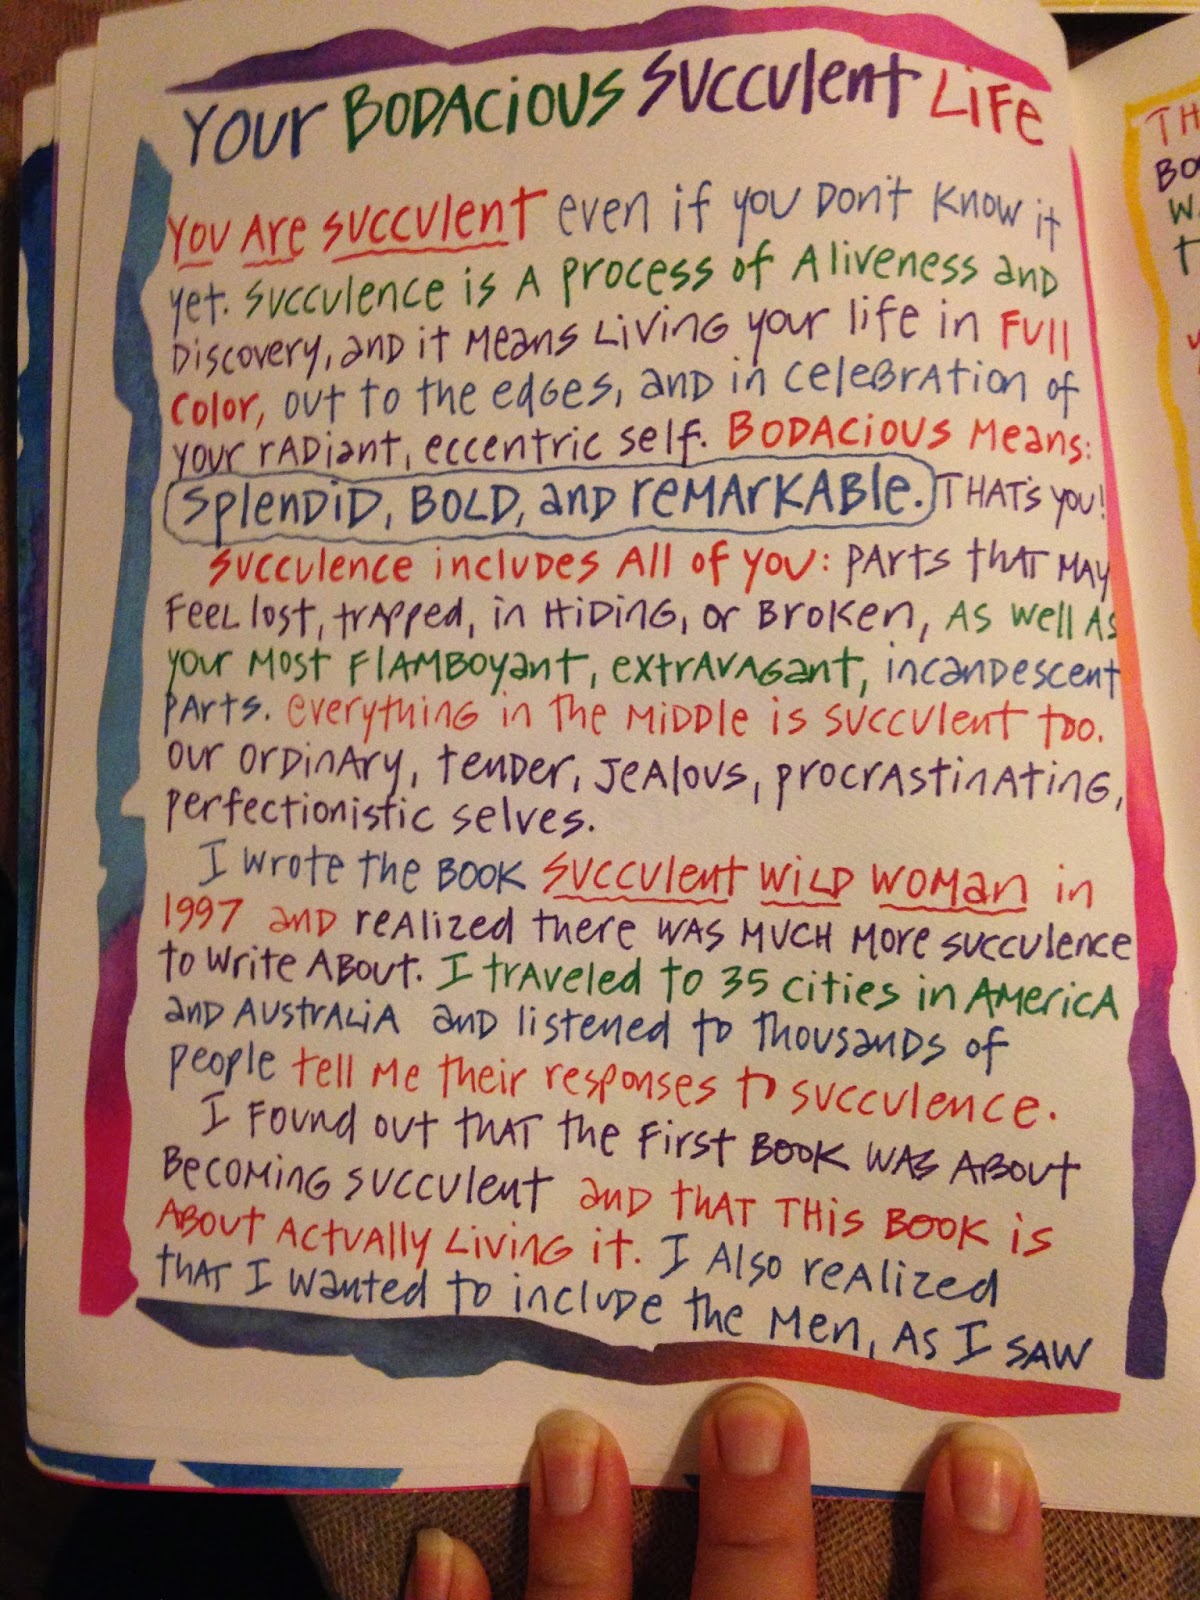 Your Bodacious Succulent Life
You Are Succulent even if you Don't Know it
yet. Succulence is A process of Aliveness and
Discovery, and it Means Living your life in Full
Color, out to the edges, and in celebration of
your radiant, eccentric self. Bodacious Means:
Splendid, Bold, and remarkable. That's you!
Succulence includes All of you: parts that may
feel lost, trapped, in Hiding, or Broken, As well As
your Most Flamboyant, extravagant, incandescent
parts. everything in the Middle is succulent too.
Our ordinary, tender, jealous, procrastinating,
perfectionistic selves.
I wrote the Book Succulent Wild Woman in
1997 and realized there was much more succulence
to write about. I traveled to 35 cities in America
and Australia and listened to thousands of
people tell me their responses to succulence.
I found out that the first Book was About
Becoming succulent and that This Book is
About Actually Living it. I Also realized
that I wanted to include the Men, As I saw
TH
BO
W
T